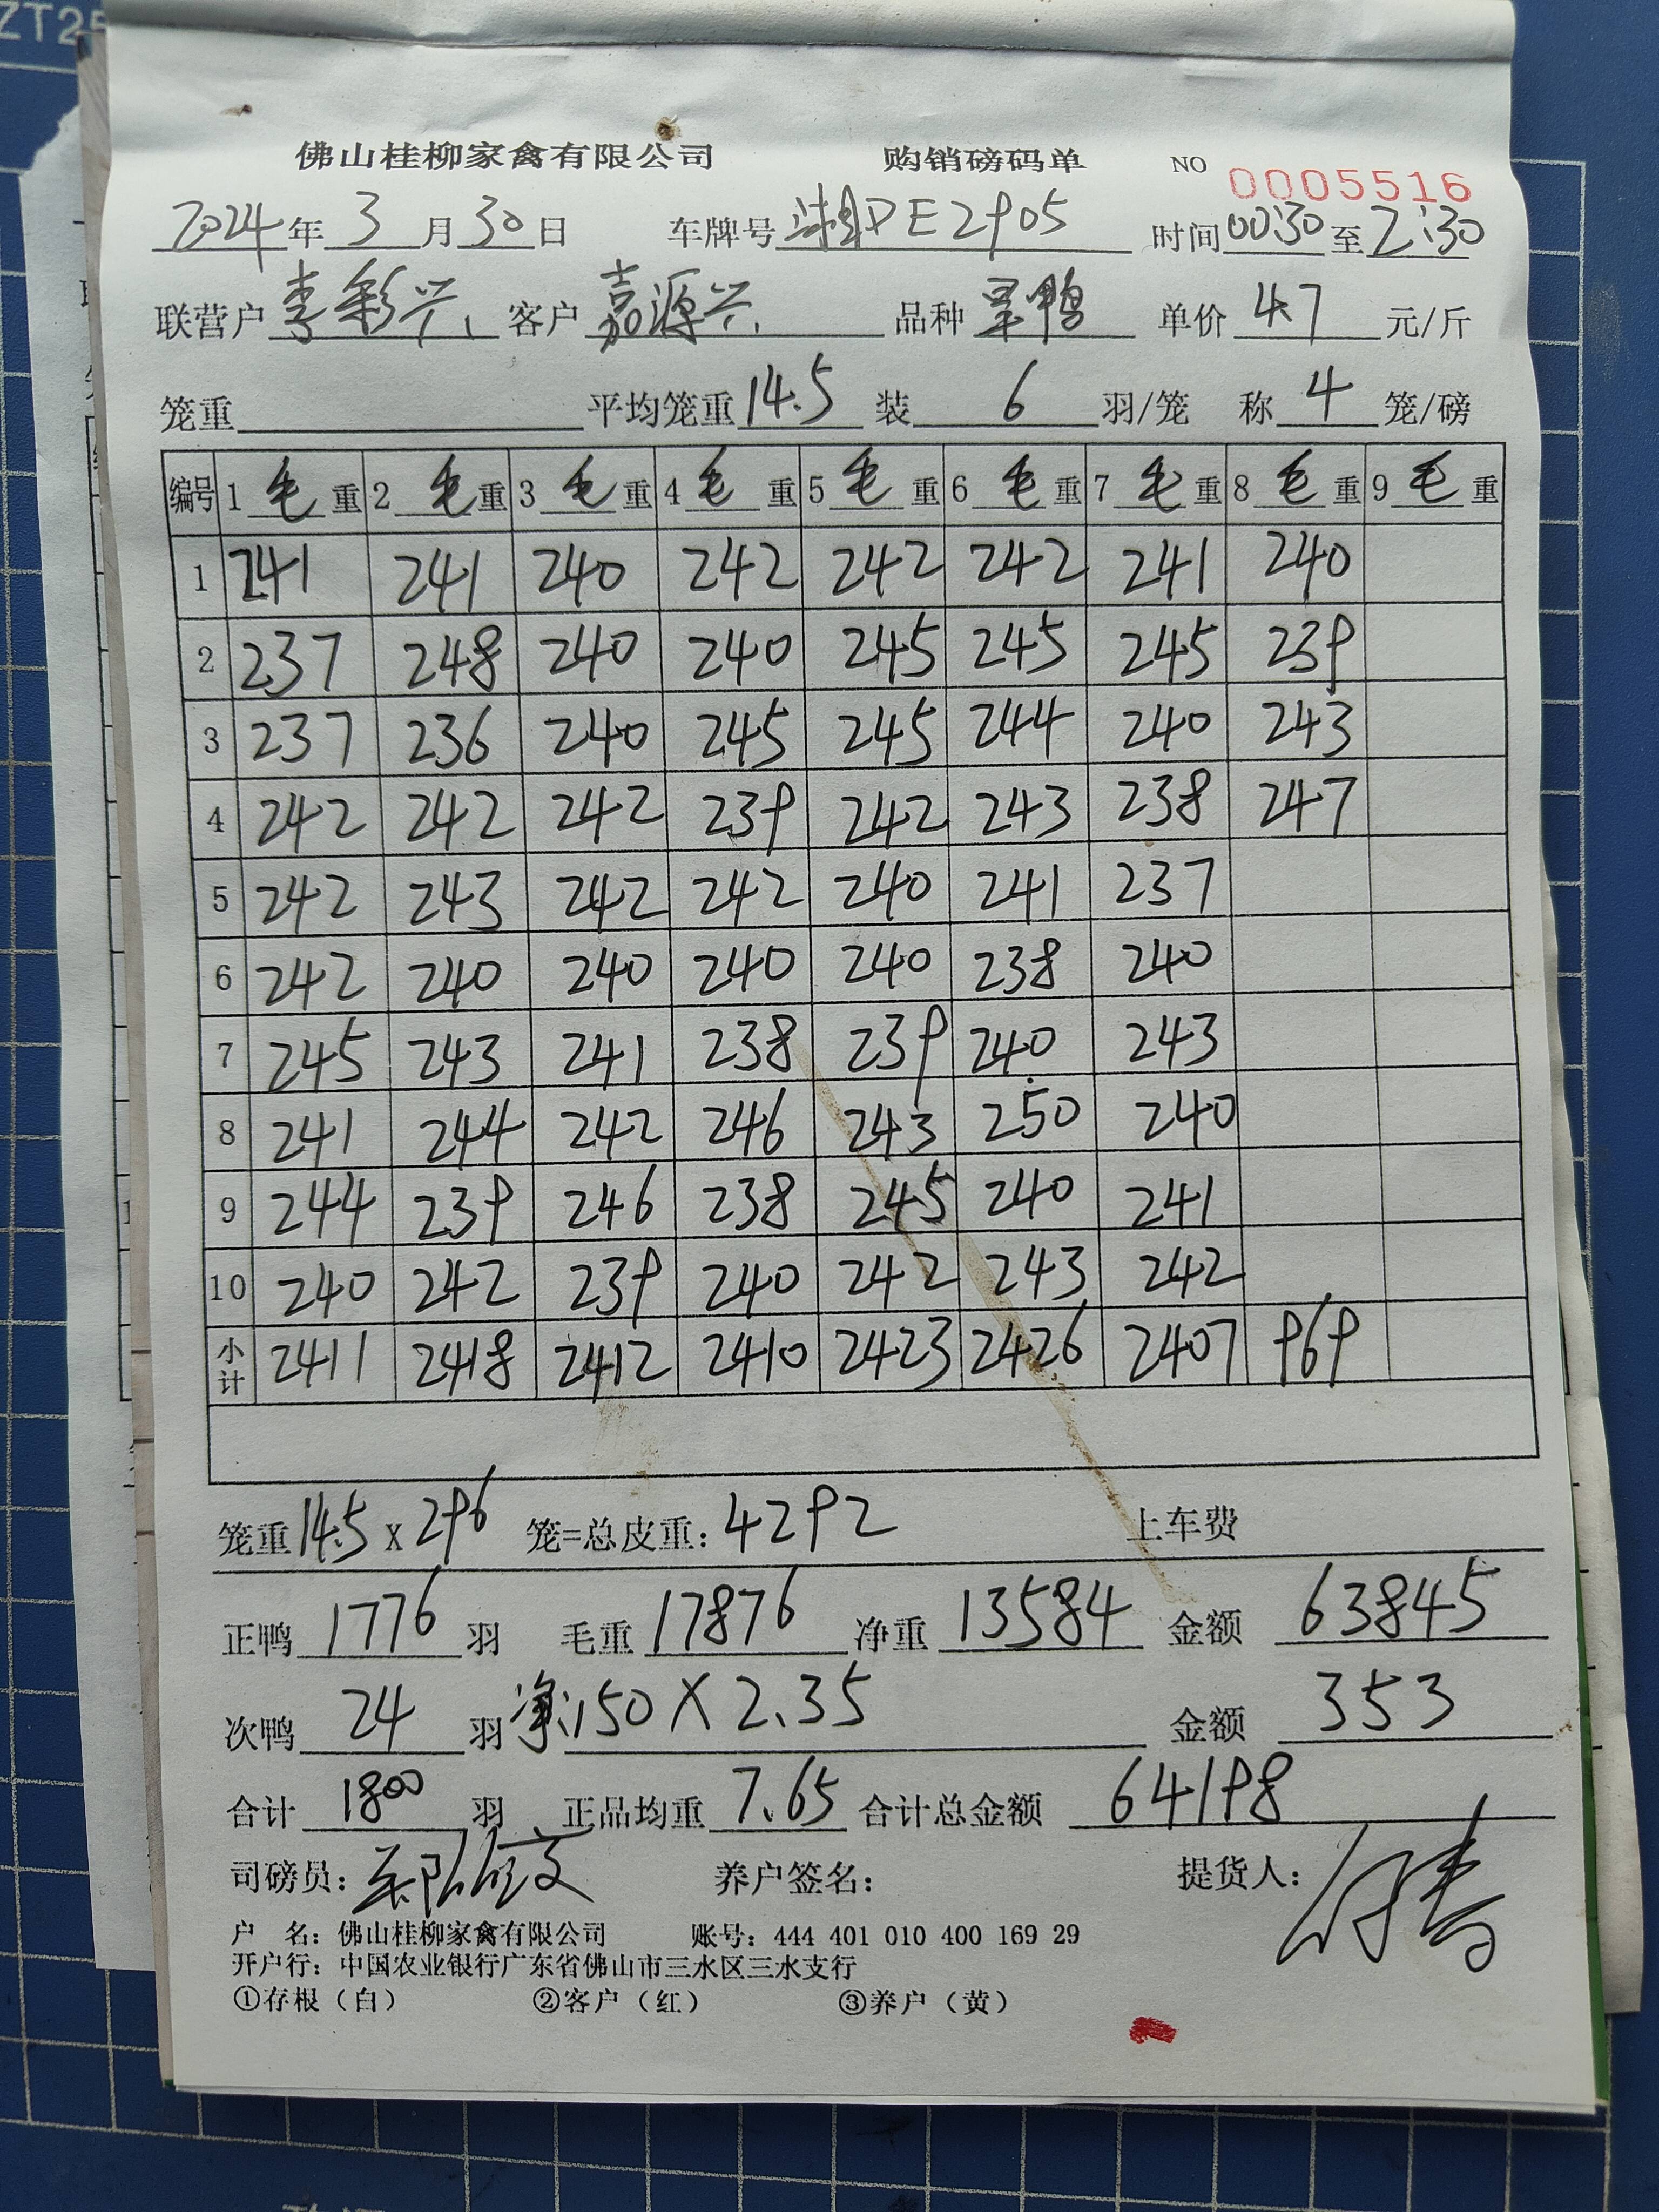 ZT25
佛山桂柳家禽有限公司 购销磅码单 NO 0005516
2024年3月30日 车牌号 湘DE2905 时间00:30至2:30
联营户 李彩兴 客户 嘉源兴 品种 鸭 单价 4.7 元/斤
笼重 平均笼重 14.5 装 6 羽/笼 称 4 笼/磅
编号 1毛重 2毛重 3毛重 4毛重 5毛重 6毛重 7毛重 8毛重 9毛重
1 241 241 240 242 242 242 241 240
2 237 248 240 240 245 245 245 239
3 237 236 240 245 245 244 240 243
4 242 242 242 239 242 243 238 247
5 242 243 242 242 240 241 237
6 242 240 240 240 240 238 240
7 245 243 241 238 239 240 243
8 241 244 242 246 243 250 240
9 244 239 246 238 245 240 241
10 240 242 239 240 242 243 242
小计 2411 2418 2412 2410 2423 2426 2407 969
笼重14.5 X 296 笼=总皮重:4292 上车费
正鸭 1776 羽 毛重 17876 净重 13584 金额 63845
次鸭 24 羽 净:150 X 2.35 金额 353
合计 1800 羽 正品均重 7.65 合计总金额 64198
司磅员: 养户签名: 提货人:
户 名: 佛山桂柳家禽有限公司 账号: 444 401 010 400 169 29
开户行: 中国农业银行广东省佛山市三水区三水支行
①存根（白） ②客户（红） ③养户（黄）